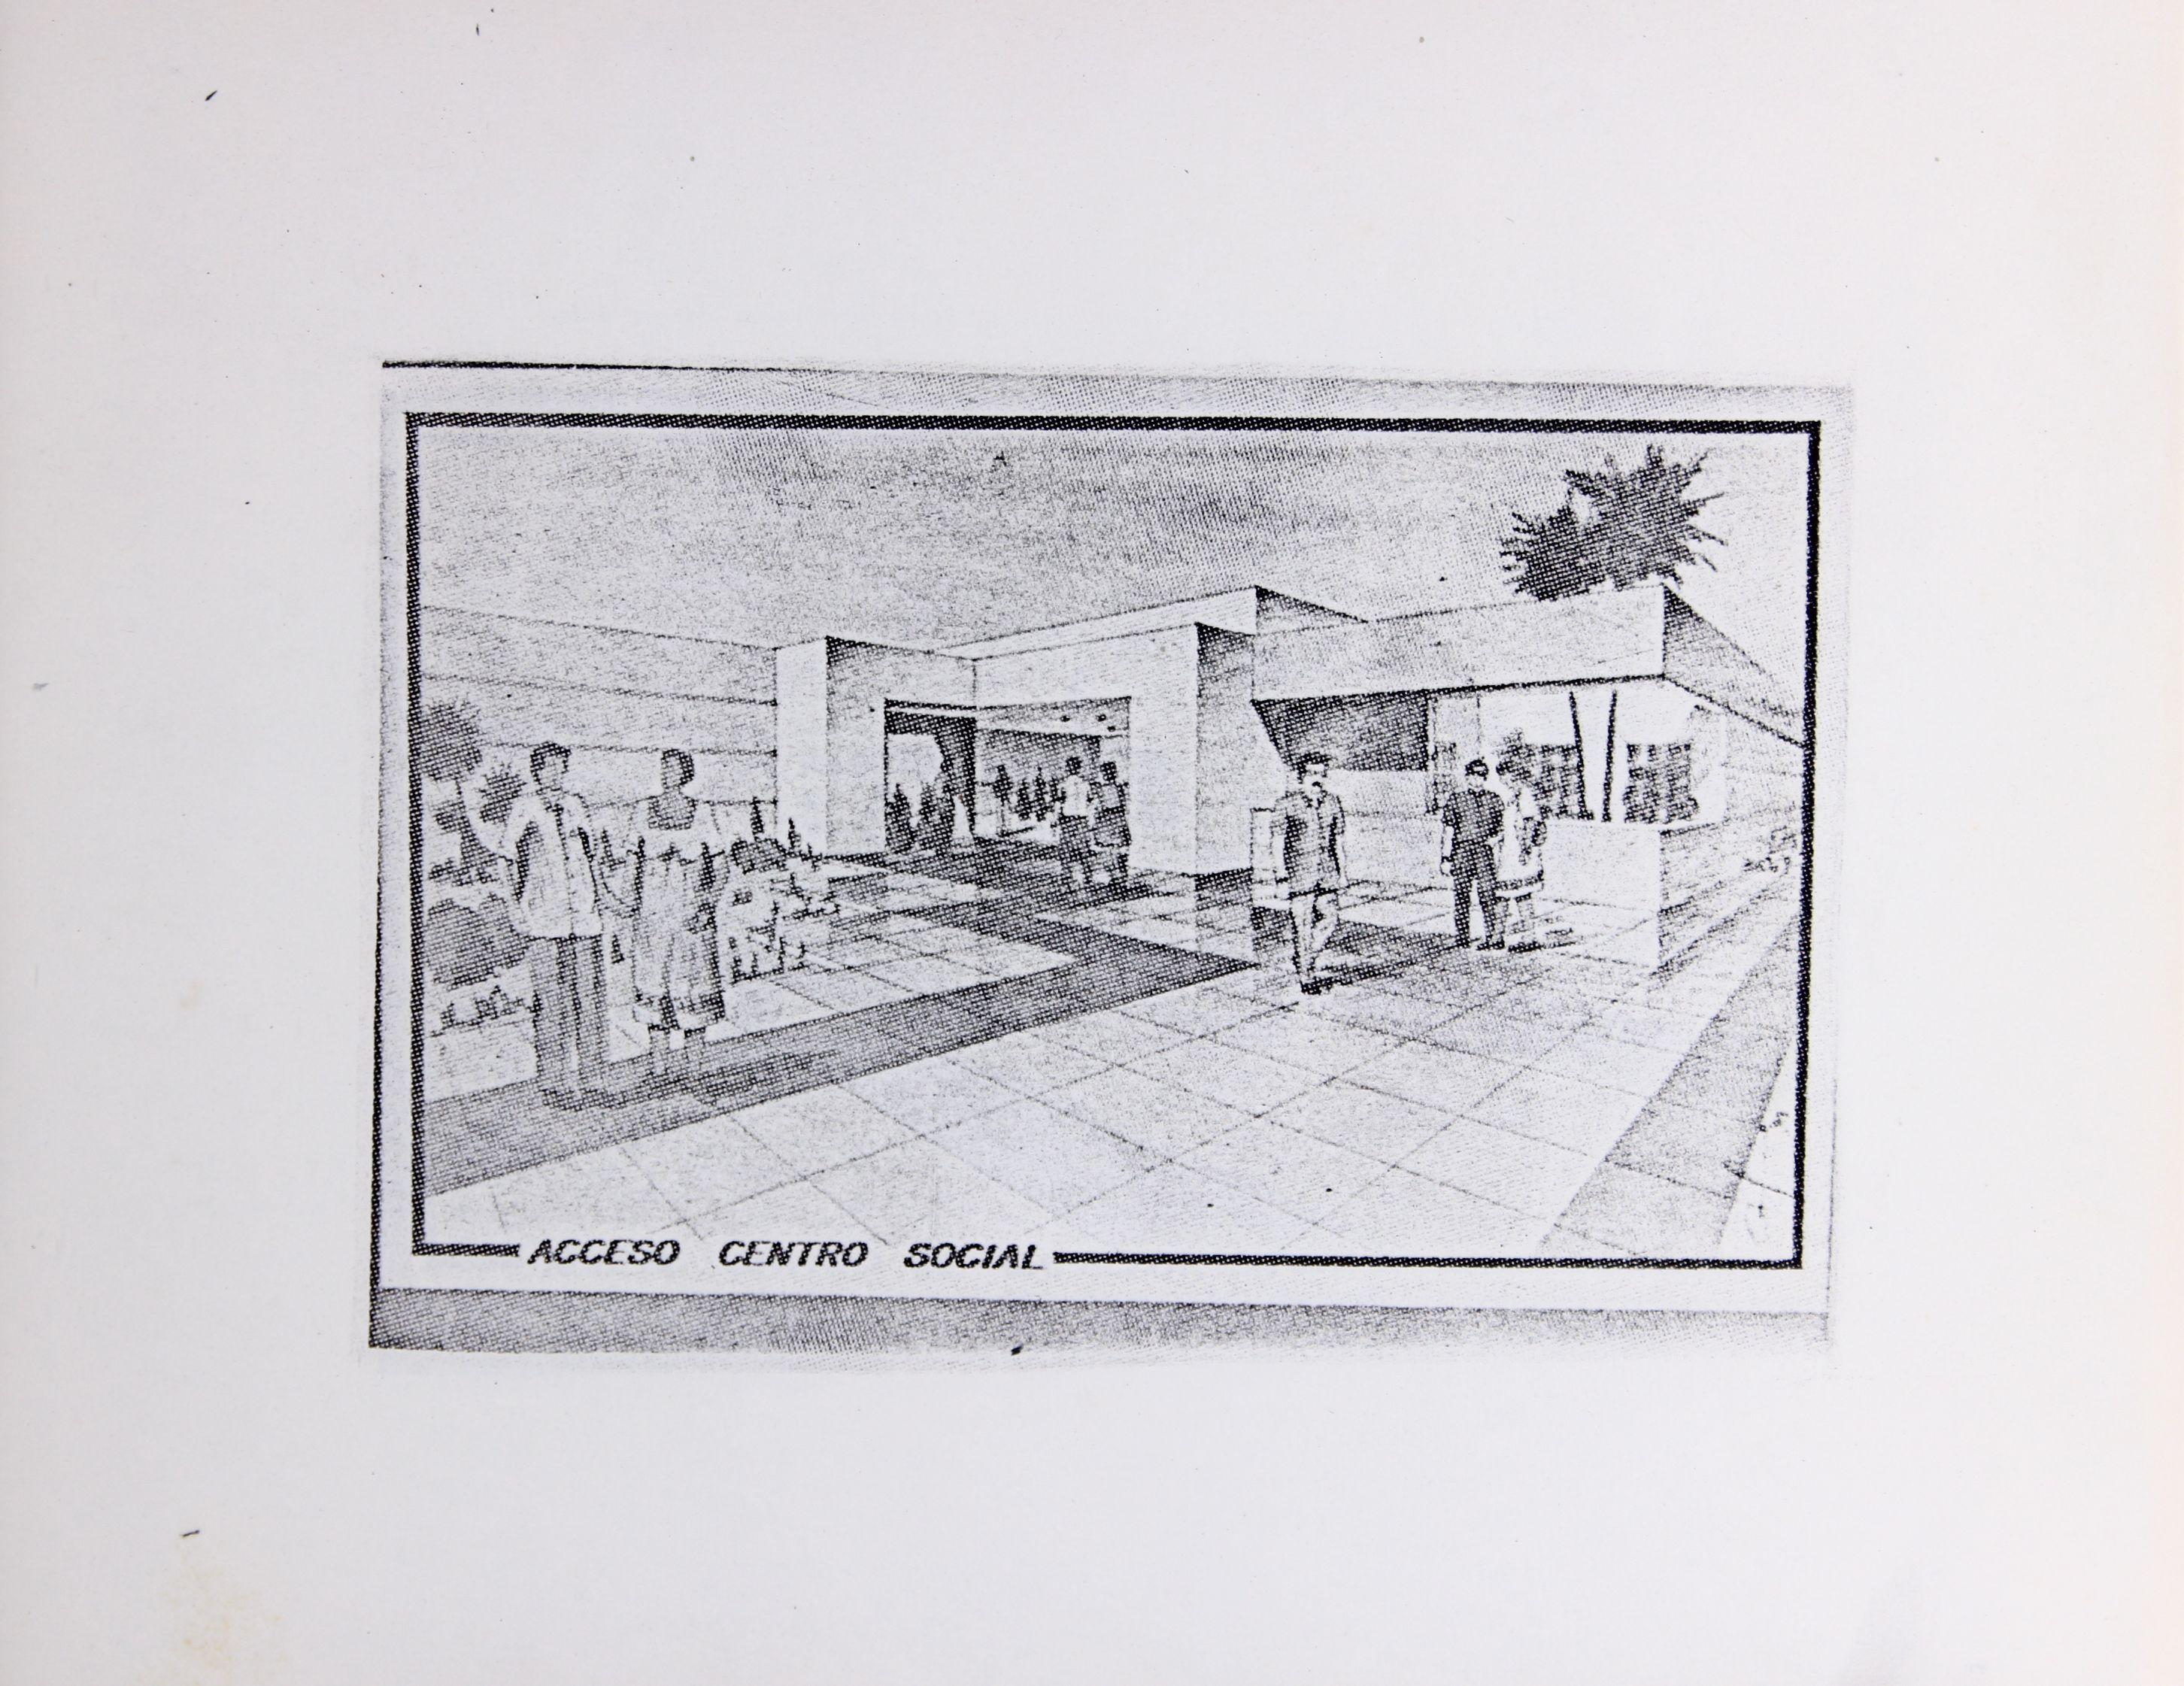 ACCESO CENTRO SOCIAL